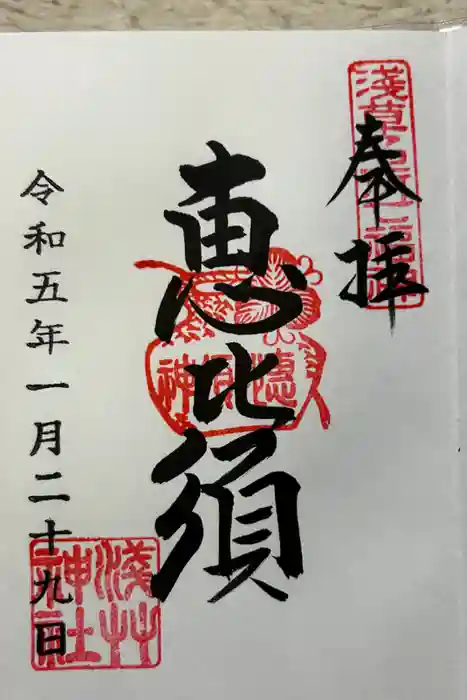 奉拝
淺草名所七福神
恵比須
令和五年一月二十九日
淺草
神社